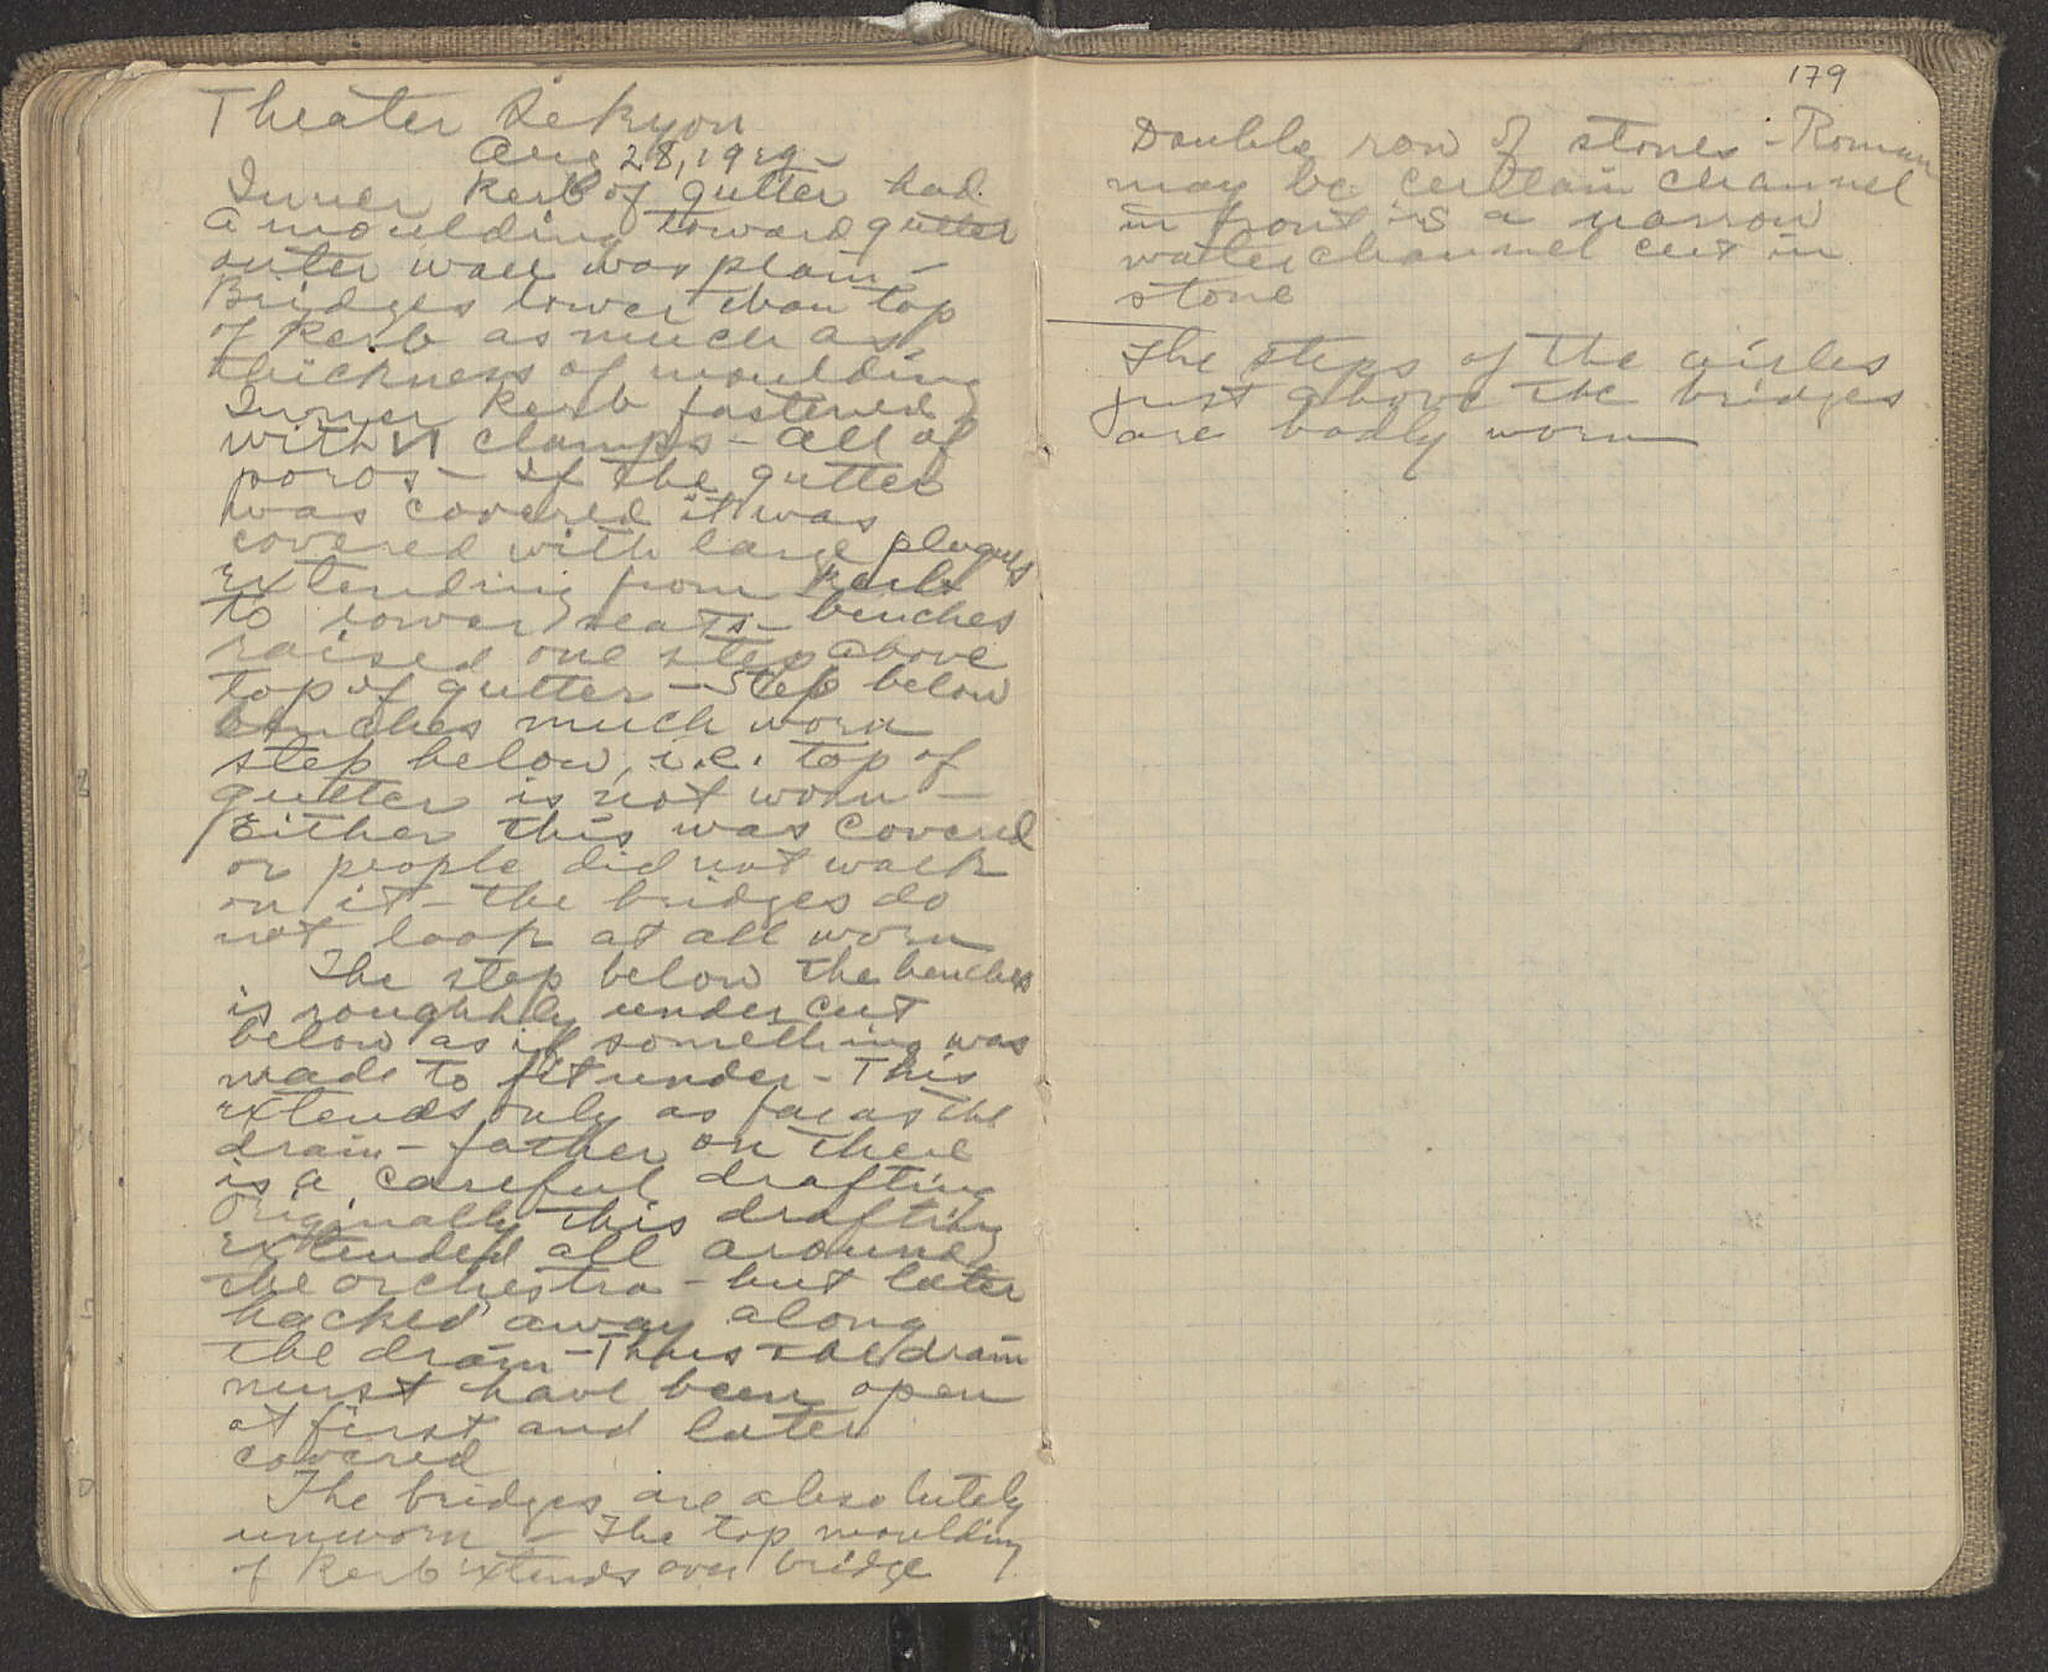 Theater Sekyon
Aug 28, 1929 -
Inner kerb of gutter had
a moulding toward gutter
outer wall was plain -
Bridges lower than top
of kerb as much as
thickness of moulding
Inner kerb fastened
with clamps - all of
poros - If the gutter
was covered it was
covered with large plaques
extending from kerb
to lower seats - benches
raised one step above
top of gutter - Step below
benches much worn
step below, i.e. top of
gutter is not worn -
Either this was covered
or people did not walk
on it - the bridges do
not look at all worn
The step below the benches
is roughly under cut
below as if something was
made to fit under - This
extends only as far as the
drain - farther on there
is a careful drafting
Originally this drafting
extended all around
the orchestra - but later
hacked away along
the drain - Thus the drain
must have been open
at first and later
covered
The bridges are absolutely
unworn - The top moulding
of kerb extends over bridge
179
Double row of stones - Roman
may be certain channel
in front is a narrow
water channel cut in
stone
The steps of the aisles
just above the bridges
are badly worn